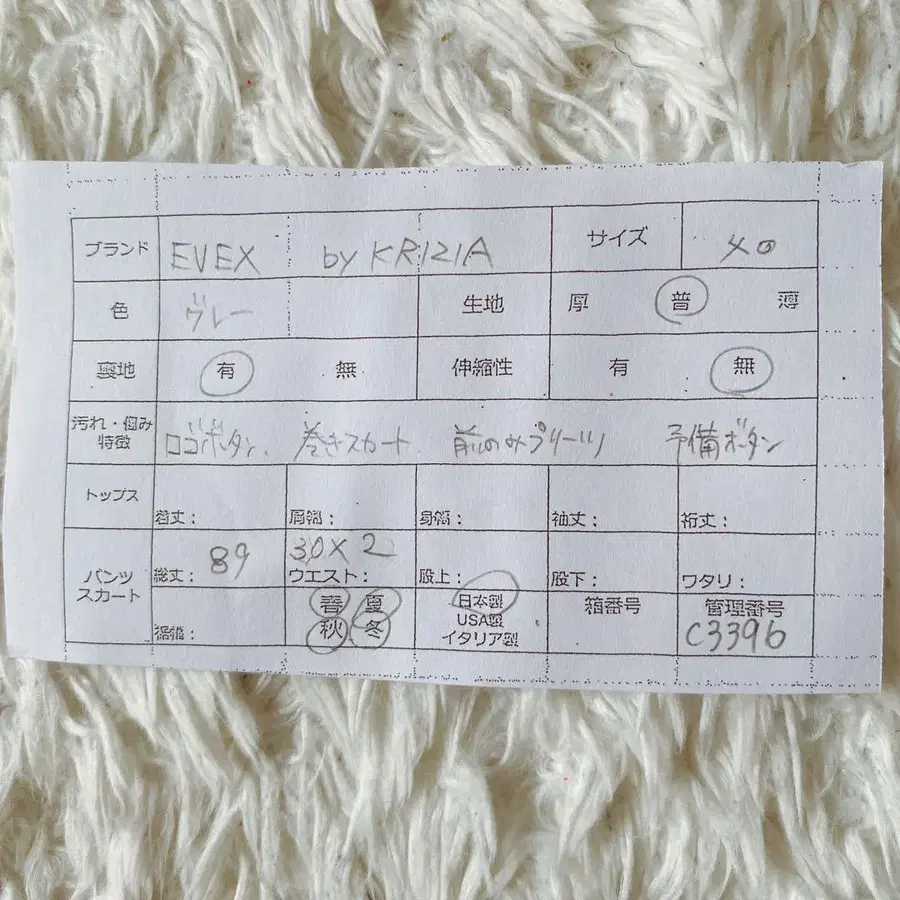 ブランド EVEX by KRIZIA サイズ 40
色 グレー 生地 厚 普 薄
裏地 有 無 伸縮性 有 無
汚れ・傷み
特徴 ロゴボタン、巻きスカート 前のみプリーツ 予備ボタン
トップス 着丈： 肩幅： 身幅： 袖丈： 裄丈：
パンツ
スカート 総丈： 89 30×2 ウエスト： 股上： 股下： ワタリ：
裾幅： 春 夏 秋 冬 日本製 USA製 イタリア製 箱番号 管理番号 C3396